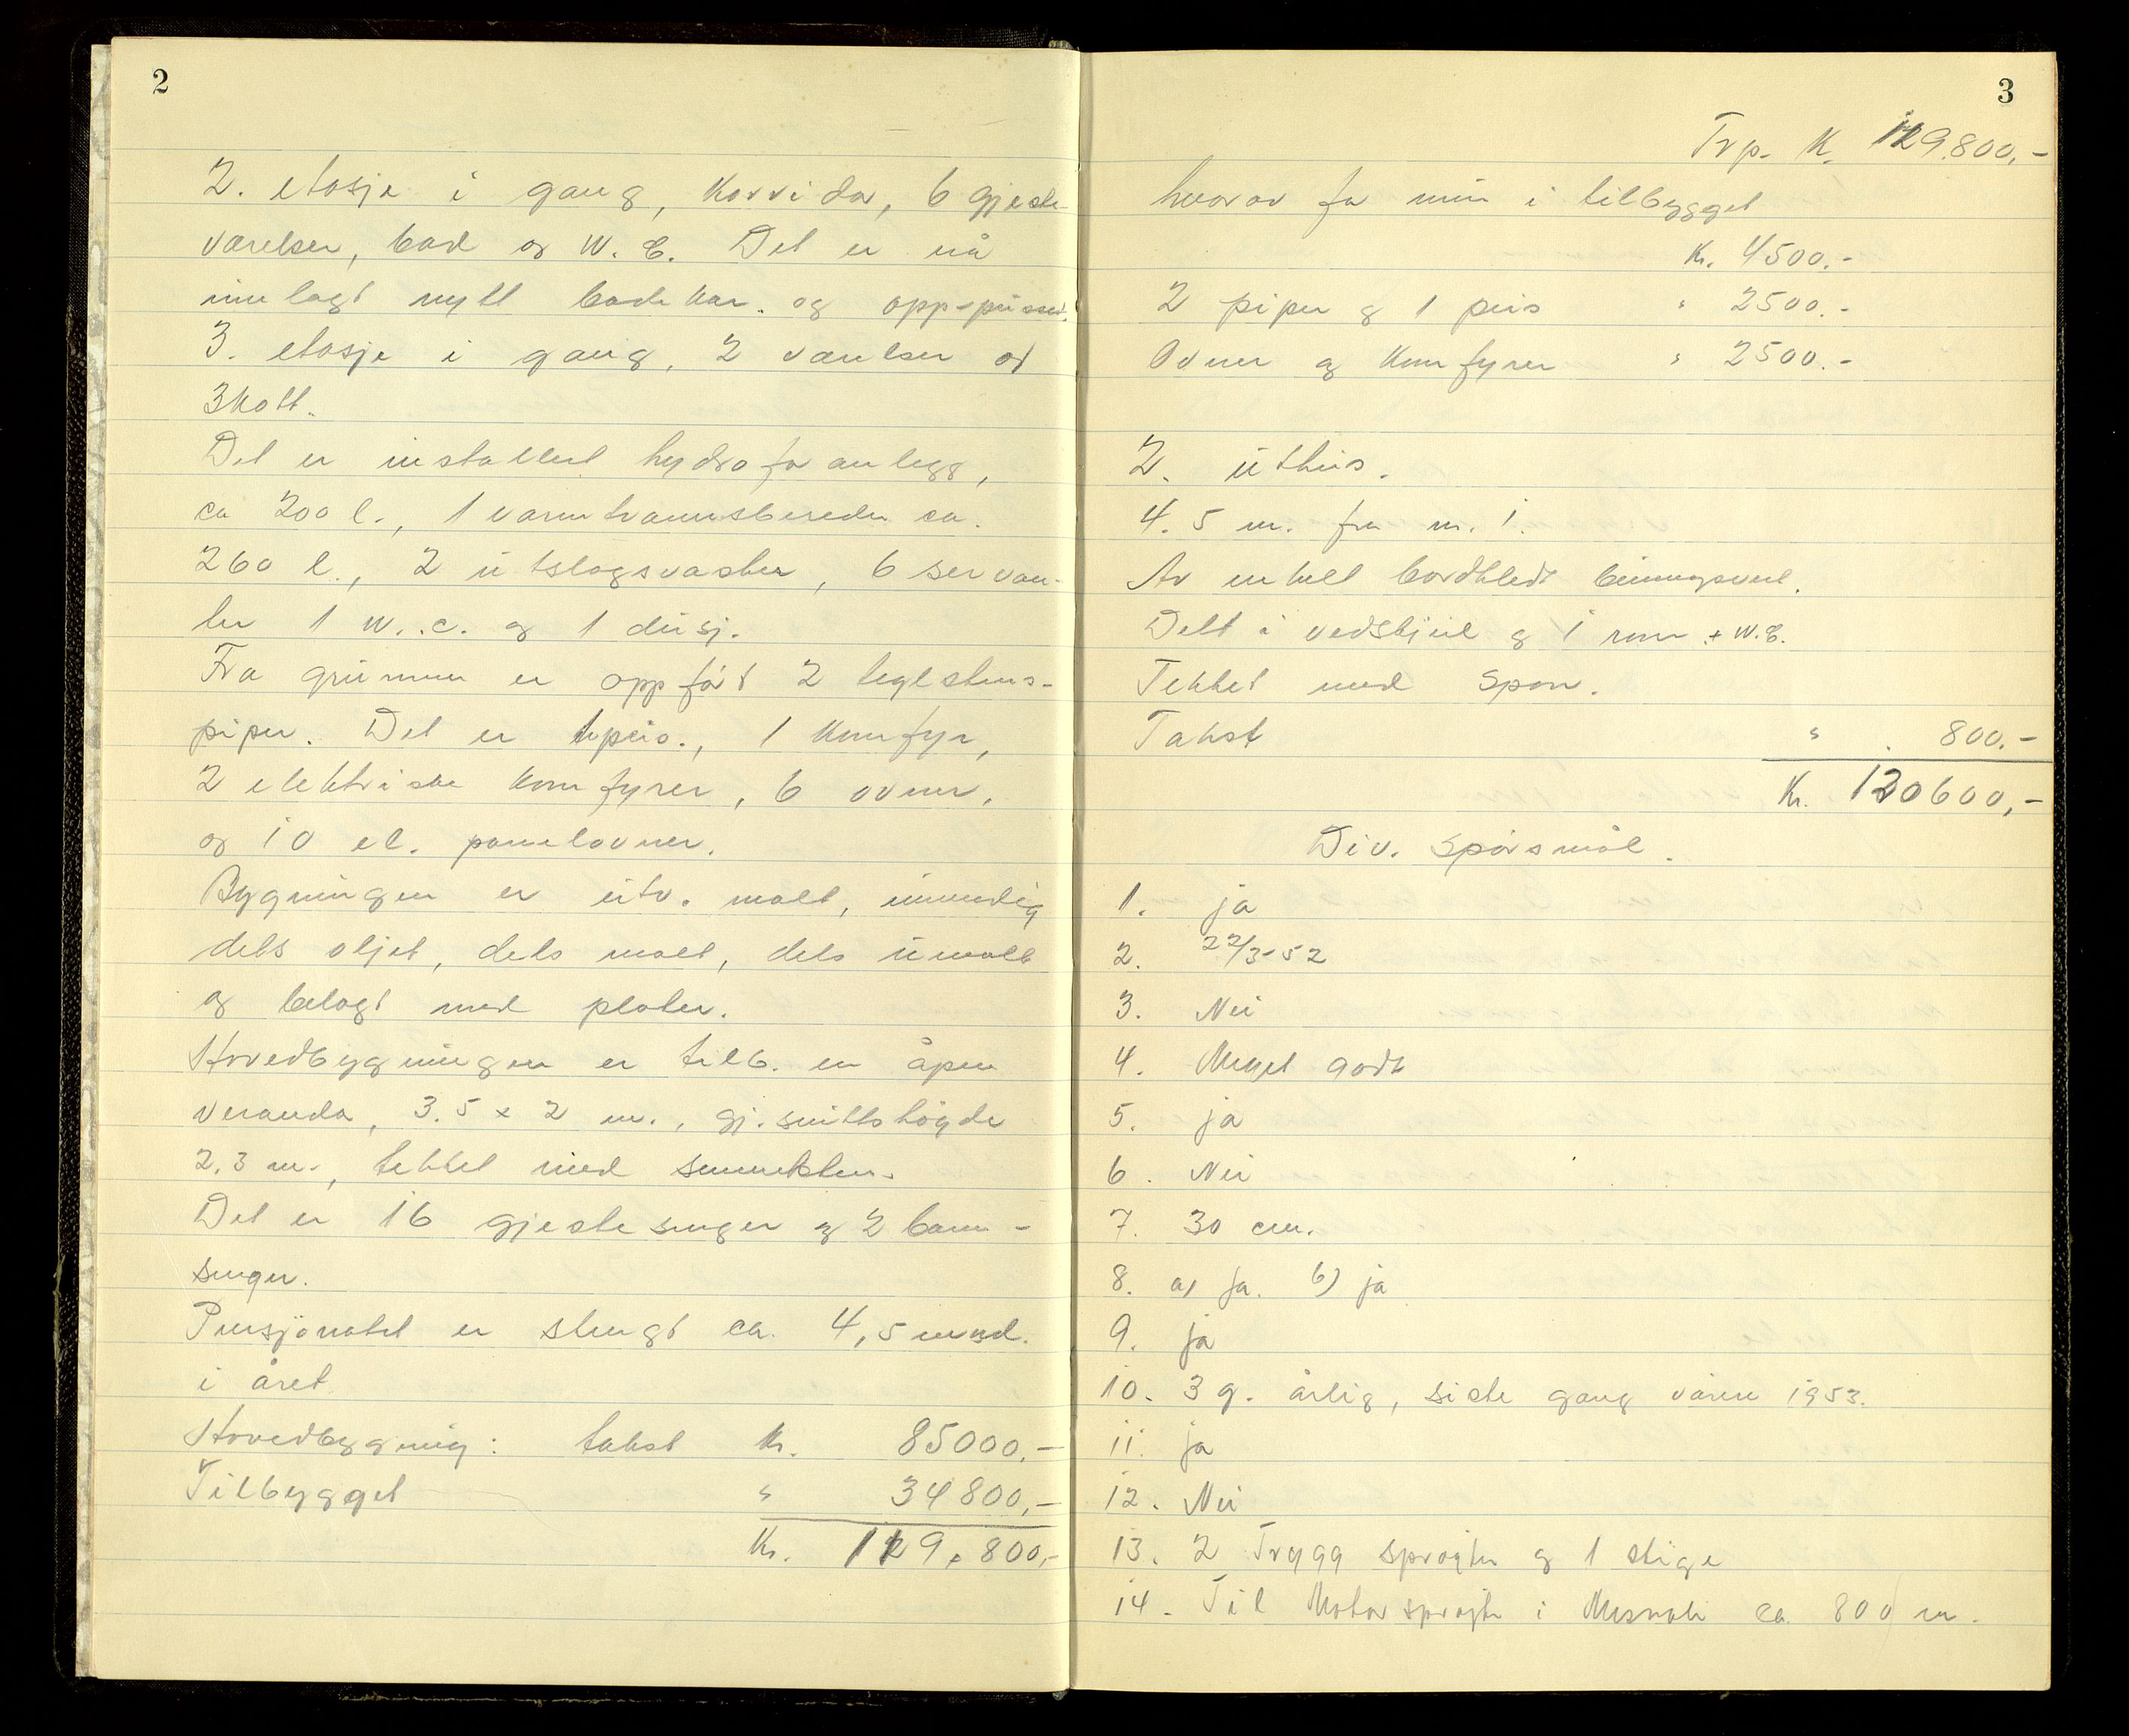 2
2. etasje i gang, korridor, 6 gjeste-
værelser, bad og W.C. Det er nå
innlagt nytt badekar. og opp-pusset.
3. etasje i gang, 2 værelser og
3 kott.
Det er installert hydroforanlegg,
ca 200 l., 1 varmtvannsbereder ca.
260 l., 2 utslagsvasker, 6 servan-
ter 1 W.C. og 1 dusj.
Fra grunnen er oppført 2 teglstens-
piper. Det er 1 peis., 1 komfyr,
2 elektriske komfyrer, 6 ovner,
og 10 el. panelovner.
Bygningen er utv. malt, innvendig
dels oljet, dels malt, dels umalt
og belagt med plater.
Hovedbygningen er tilb. en åpen
veranda, 3.5 x 2 m., gj.snittshøyde
2.3 m., tekket med
Det er 16 gjestesenger og 2 barne-
senger.
Pensjonatet er stengt ca. 4,5 mnd.
i året
Hovedbygning: takst kr. 85000,-
Tilbygget " 34800,-
Kr. 119.800,-
3
Trp. K. 119.800,-
hvorav for mur i tilbygget
Kr. 4500.-
2 piper og 1 peis " 2500.-
Ovner og komfyrer " 2500.-
2. uthus.
4.5 m. fra nr. 1.
Av enkelt bordkledt bindingsverk.
Delt i vedskjul og 1 rom + W.C.
Tekket med spon.
Takst " 800.-
Kr. 120600,-
Div. spørsmål.
1. ja
2. 22/3-52
3. Nei
4. Meget godt
5. ja
6. Nei
7. 30 cm.
8. a) ja. b) ja
9. ja
10. 3 g. årlig, siste gang våren 1953.
11. ja
12. Nei
13. 2 Trygg sprøyter og 1 stige
14. Til Motorsprøyte i Mesnali ca. 800 m.